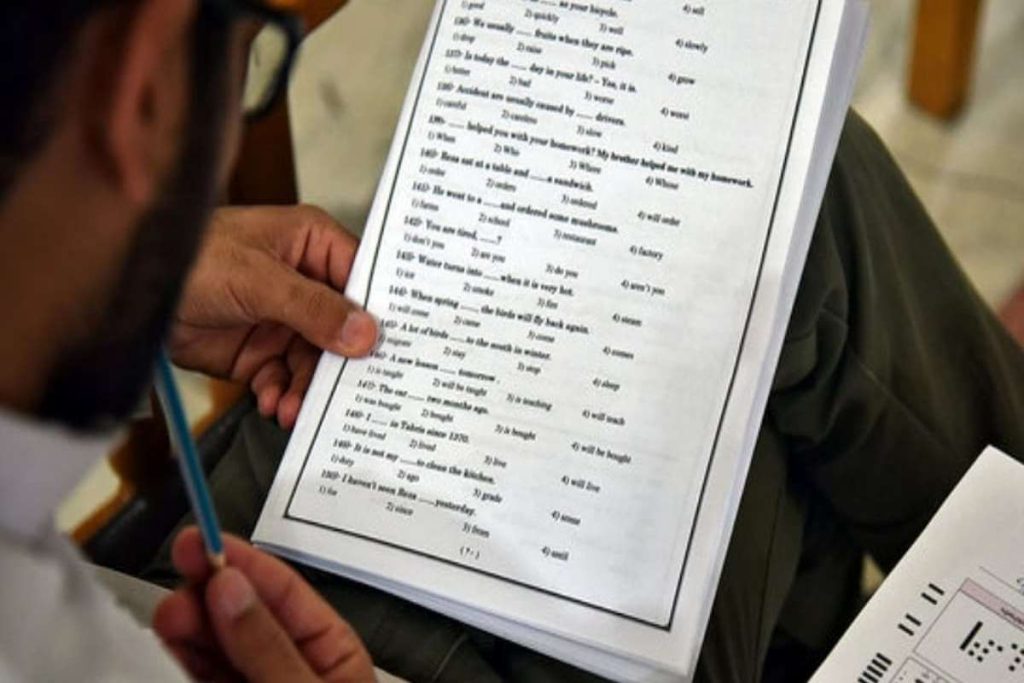 ___ as your bicycle.
1) good 2) quickly 3) well 4) slowly
136- We usually ___ fruits when they are ripe.
1) drop 2) raise 3) pick 4) grow
137- Is today the ___ day in your life? – Yes, it is.
1) better 2) bad 3) worse 4) worst
138- Accident are usually caused by ___ drivers.
1) careful 2) careless 3) slow 4) kind
139- ___ helped you with your homework? My brother helped me with my homework.
1) When 2) Who 3) Where 4) Whose
140- Reza sat at a table and ___ a sandwich.
1) order 2) orders 3) ordered 4) will order
141- He went to a ___ and ordered some mushrooms.
1) farms 2) school 3) restaurant 4) factory
142- You are tired, ___?
1) don't you 2) are you 3) do you 4) aren't you
143- Water turns into ___ when it is very hot.
1) ice 2) smoke 3) fire 4) steam
144- When spring ___ the birds will fly back again.
1) will come 2) came 3) come 4) comes
145- A lot of birds ___ to the south in winter.
migrate 2) stay 3) stop 4) sleep
146- A new lesson ___ tomorrow.
1) is taught 2) will be taught 3) is teaching 4) will teach
147- The car ___ two months ago.
1) was bought 2) bought 3) is bought 4) will be bought
148- I ___ in Tabriz since 1370.
1) have lived 2) lived 3) live 4) will live
149- It is not my ___ to clean the kitchen.
1) duty 2) ago 3) grade 4) some
150- I haven't seen Reza ___ yesterday.
1) for 2) since 3) from 4) until